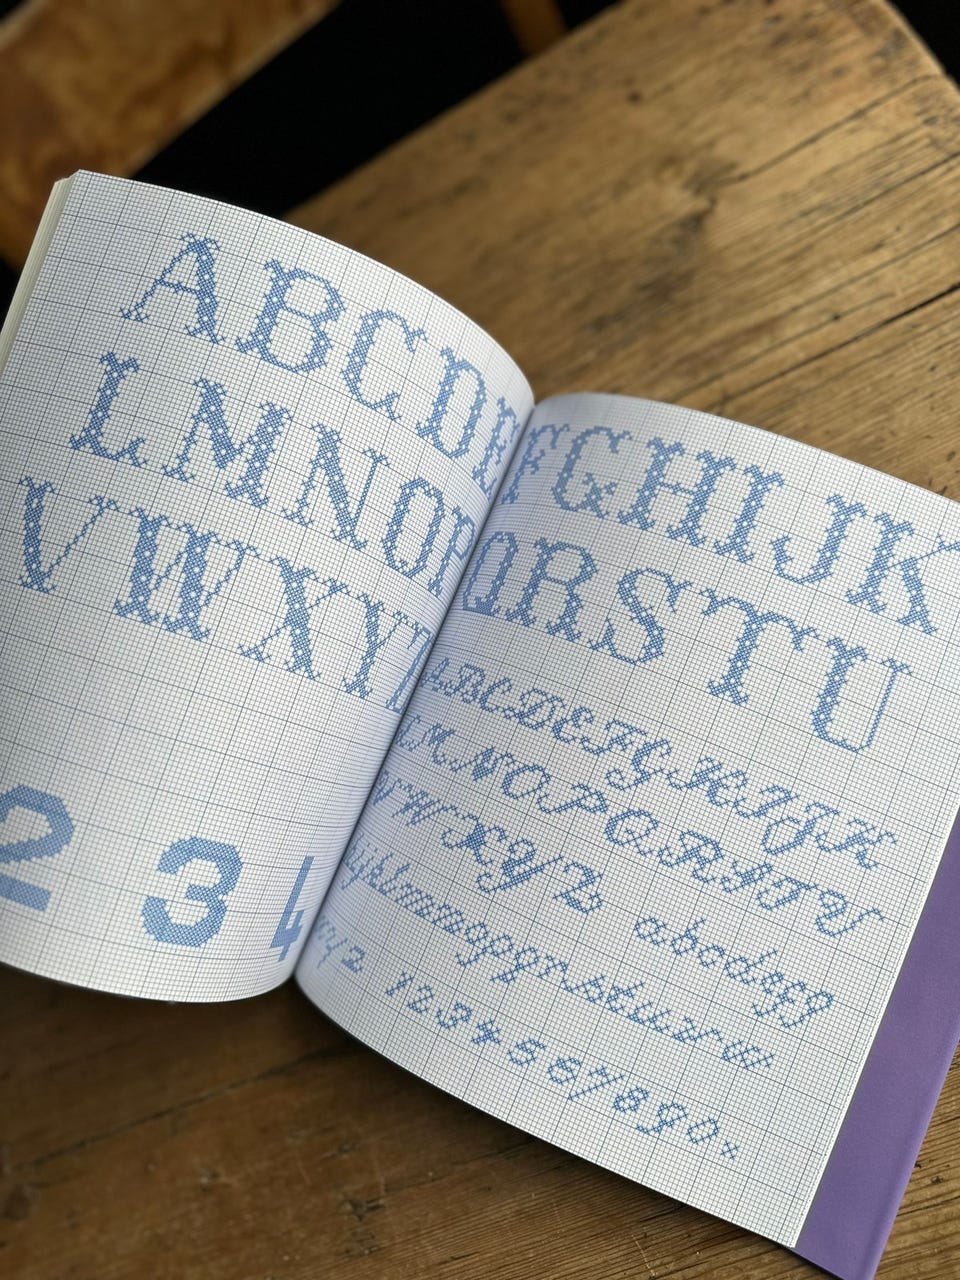 ABCDE
LMNOP
VWXYZ
2 3 4
FGHIJK
QRSTU
ABCDEFGHIJK
LMNOPQRSTU
VWXYZ abcdefg
hijklmnopqrstuvw
xyz 1234567890x